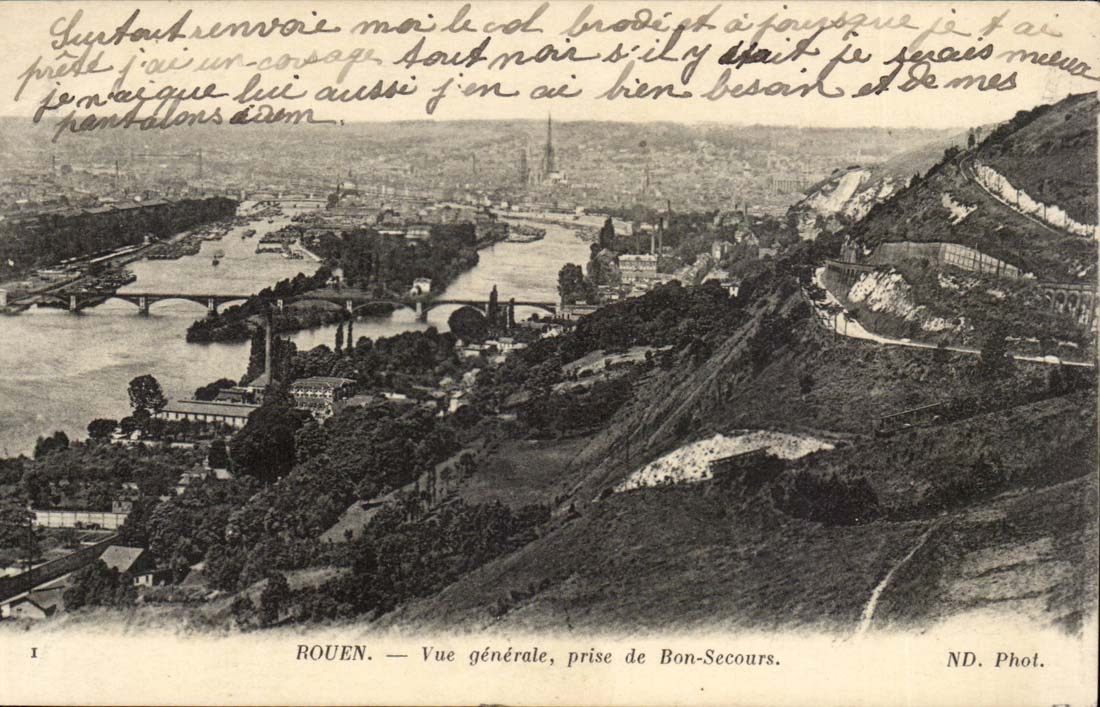 Surtout renvoie moi le col brodé et à jousque je t ai
prêté j'ai un corsage tout noir s'il y etait je serais mieux
je n'ai que lui aussi j'en ai bien besoin et de mes
pantalons idem.
1 ROUEN. — Vue générale, prise de Bon-Secours. ND. Phot.